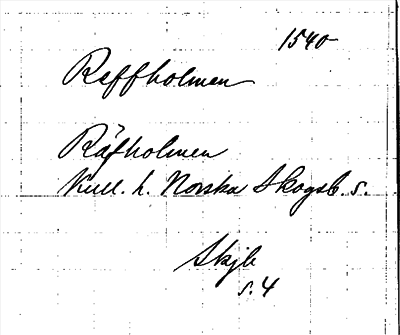 1540
Reffholmen
Räfholmen
Kull. h. Norska Skogsb. s.
Skjb
s. 4